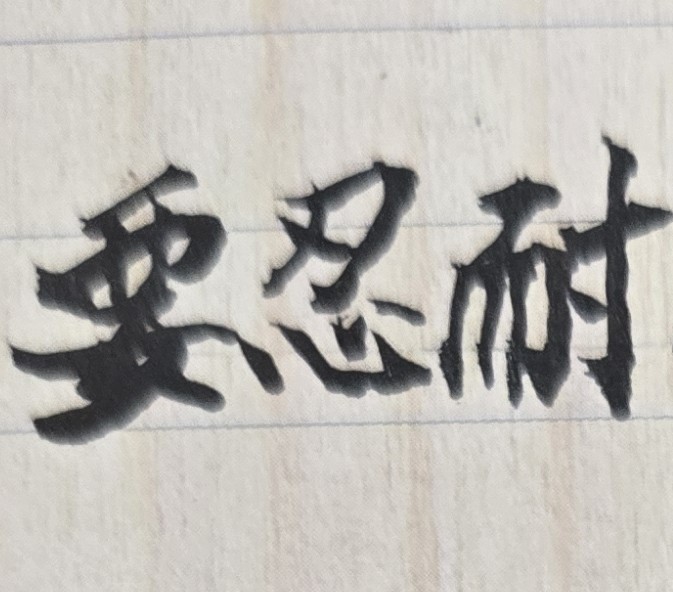 要忍耐